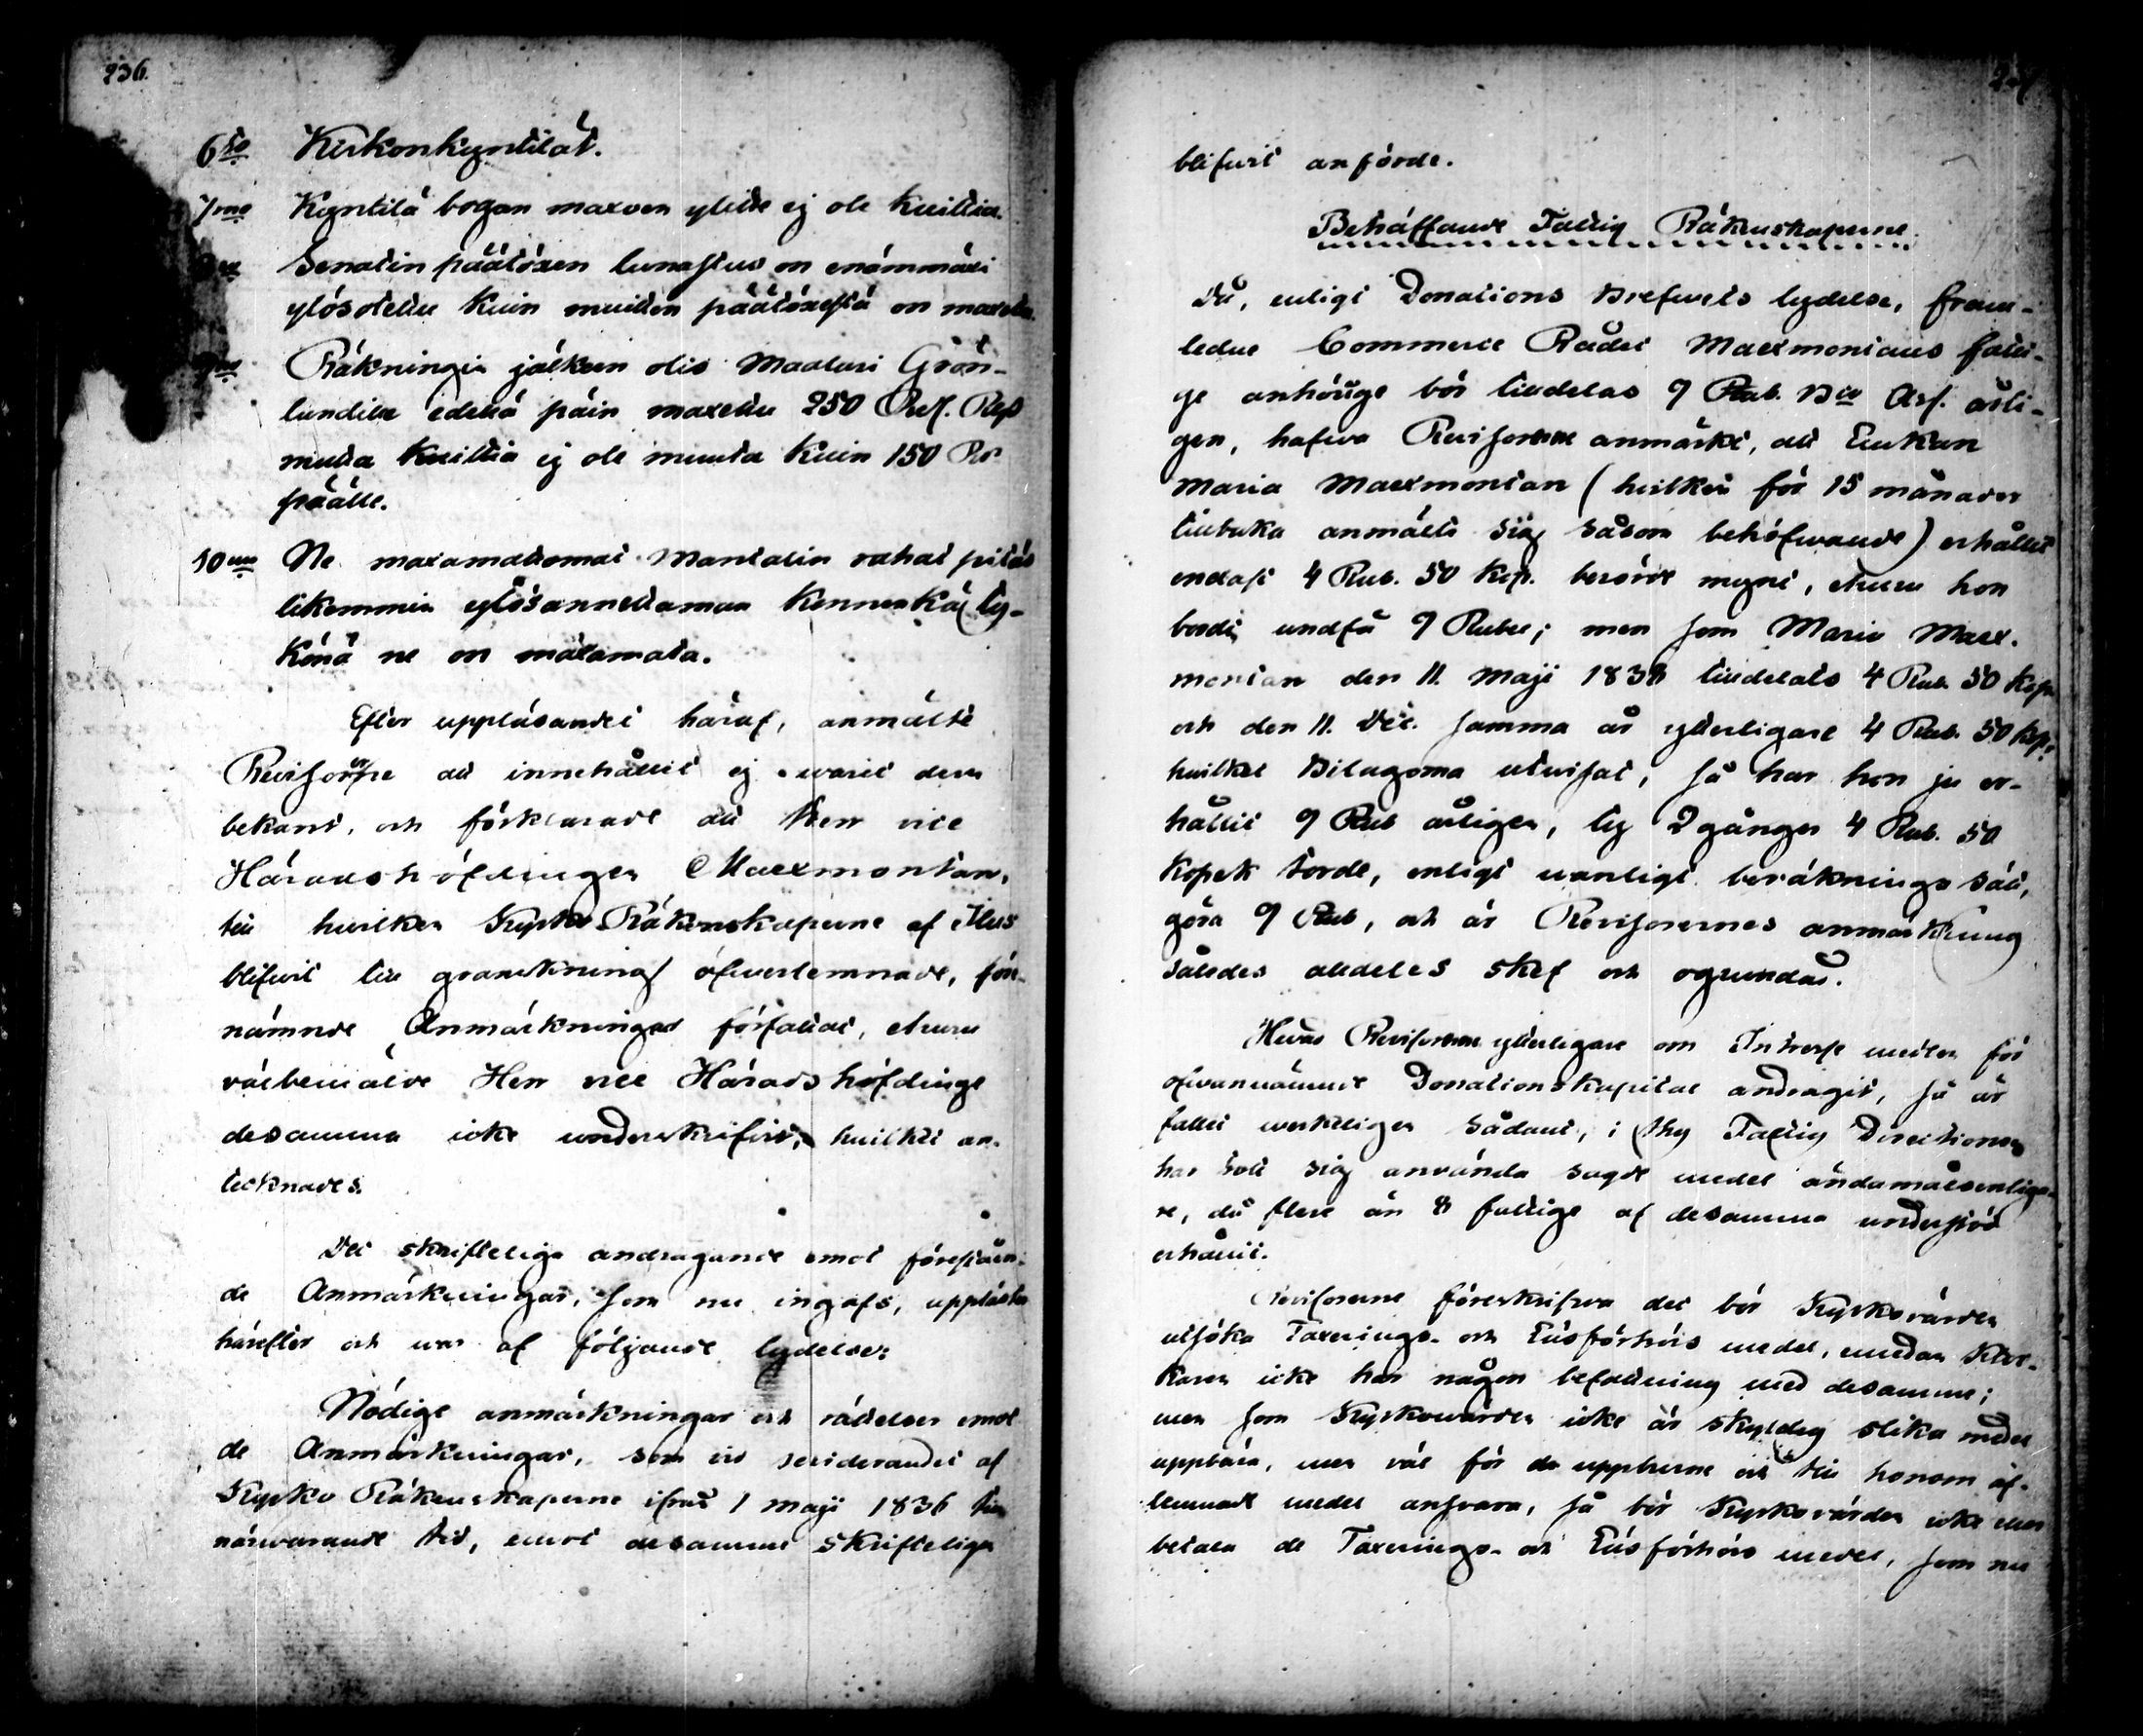 236.
6to Kirkonkyntilät.
7mo Kyntilä bogan maxoen ylitte ej ole kuittia.
Senatin päätöxen lunastus on enämmäxi
ylösotettu kuin muitten päätöxestä on maxettu.
Räkningin jälkeen olis Maalari Grön-
lundille edeskä päin maxettu 250 Ru. Rep
mutta kuittia ej ole muuta kuin 150 Ru
päälle.
10mo Ne maxamattomat Mantalin rahat pitäs
likemmin ylösannettaman kennenkä ty-
könä ne on mäxamata.
Efter uppläsandet häraf, anmälte
Revisorerne att innehållet ej warit dem
bekant, och förklarade att Herr vice
Häradshöfdingen Maexmontan,
till hvilken Kyrko Räkenskaperne af Illus
blifvit till granskning öfwerlemnade, för-
nämnde Anmärkningar författat, ehuru
välbemälde Herr vice Häradshöfdinge
desamma icke underskrifvit; hvilket an-
tecknades.
Det skrifteliga andragande emot förestäen-
de Anmärkningar, som nu ingafs, upplästes
härefter och war af följande lydelse:
Nödige anmärkningar och rättelser emot
de Anmärkningar, som vid reviderandet af
Kyrko Räkenskaperne ifrån 1 maji 1836 till
närwarande tid, emot desamme skrifteliga
blifvit anförde.
Beträffande Fattig Räkenskaperne.
Då, enligt Donations Brefwets lydelse, fram-
ledne Commerce Rådet Maexmontans fatti-
ge anhörige bör tilldelas 9 Rub. Bco Ass. årli-
gen, hafwa Revisorerne anmärkt, att Enkan
Maria Maexmontan (hvilken för 15 månader
tillbaka anmält sig såsom behöfwande) erhållit
endast 4 Rub. 50 Kop. berörde mynt, ehuru hon
bordt undfå 9 Rubel; men som Maria Maex-
montan den 11. Maji 1838 tilldelats 4 Rub. 50 Kop.
och den 11. Dec. samma år ytterligare 4 Rub. 50 Kop.
hvilket Bilagorna utvisat, så har hon ju er-
hållit 9 Rub årligen, ty 2 gånger 4 Rub. 50
Kopek torde, enligt wanligt beräknings sätt,
göra 9 Rub, och är Revisorernes anmärkning
således alldeles skef och ogrundad.
Hvad Revisorerne ytterligare om Intresse medlen för
ofwannämnde Donationskapital andragit, så är
fallet werkeligen sådant, i thy Fattig Directionen
har trott sig använda sagde medel ändamålsenliga-
re, då flere än 8 fattige af desamma understöd
erhållit.
Revisorerne föreskrifwa det bör Kyrkovärden
utsöka Taxerings- och Låsförhörs medel, emedan Kloc-
karen icke har någon befattning med desamme;
men som Kyrkowärden icke är skyldig slika medel
uppbära, men väl för de uppburne och till honom af-
lemnade medel answara, så bör Kyrkovärden icke eller
betala de Taxerings- och Låsförhörs medel, som nu